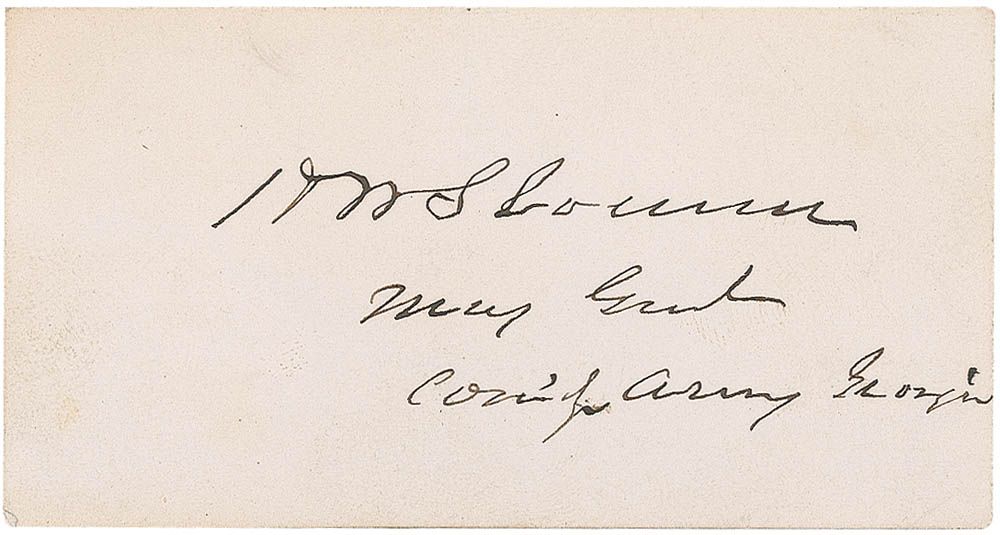 H W Slocum
Maj Genl
Com'd'g Army Georgia